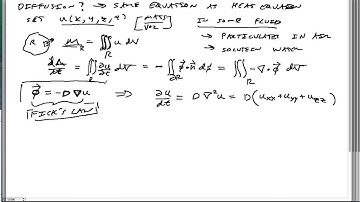 DIFFUSION? → SAME EQUATION AS HEAT EQUATION
SET u(x,y,z,t) [MASS/VOL] IN SOME FLUID
→ PARTICULATES IN AIR
→ SOLUTE IN WATER
R m = ∭_R u dV
dm/dt = ∭_R ∂u/∂t dV = -∬_∂R φ⃗·n⃗ dS = ∭_R -∇·φ⃗ dV
φ⃗ = -D∇u ⇒ ∂u/∂t = D∇²u = D(u_xx + u_yy + u_zz)
FICK'S LAW